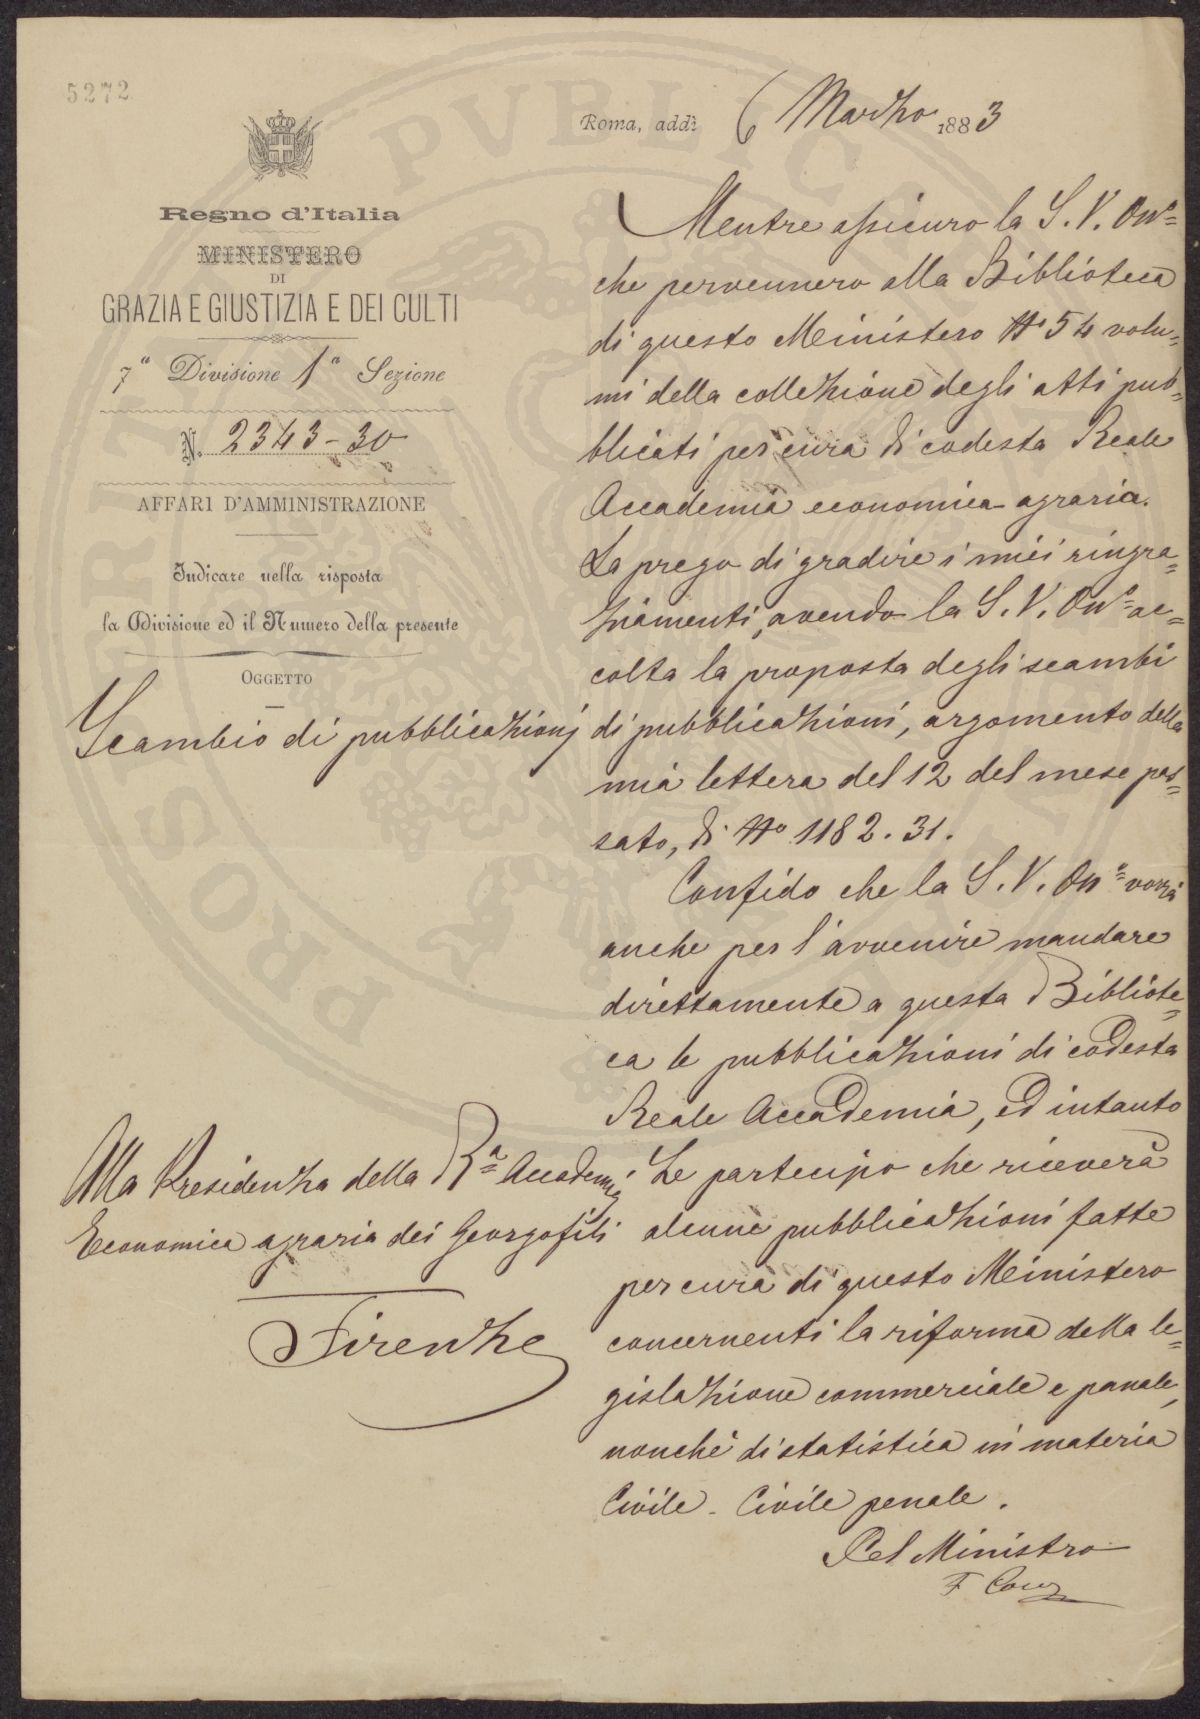 5272
Regno d'Italia
MINISTERO
DI
GRAZIA E GIUSTIZIA E DEI CULTI
7ª Divisione 1ª Sezione
N. 2343-30
AFFARI D'AMMINISTRAZIONE
Indicare nella risposta
la Divisione ed il Numero della presente
OGGETTO
Scambio di pubblicazioni
Alla Presidenza della Rª Accademia
Economica agraria dei Georgofili
Firenze
Roma, addì 6 Marzo 1883
Mentre assicuro la S. V. Onᵉ
che pervennero alla Biblioteca
di questo Ministero Nº 54 volu=
mi della collezione degli atti pub=
blicati per cura di codesta Reale
Accademia economica agraria.
La prego di gradire i miei ringra=
ziamenti, avendo la S. V. Onᵉ ac=
colta la proposta degli scambi
di pubblicazioni, argomento della
mia lettera del 12 del mese pas=
sato, di Nº 1182. 31.
Confido che la S. V. Onᵉ vorrà
anche per l'avvenire mandare
direttamente a questa Bibliote=
ca le pubblicazioni di codesta
Reale Accademia, ed intanto
Le partecipo che riceverà
alcune pubblicazioni fatte
per cura di questo Ministero
concernenti la riforma della le=
gislazione commerciale e panale,
nonchè di statistica in materia
Civile - Civile penale.
Pel Ministro
F
PROSPERITATI PVBLICAE